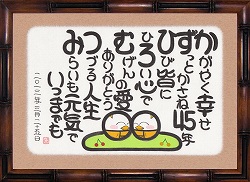 かがやく幸せ
ずっとかさね45年
ひび皆に
ひろい心で
むげんの愛
ありがとう
つづる人生
みらいも元気で
いつまでも
二〇一二年三月二十五日